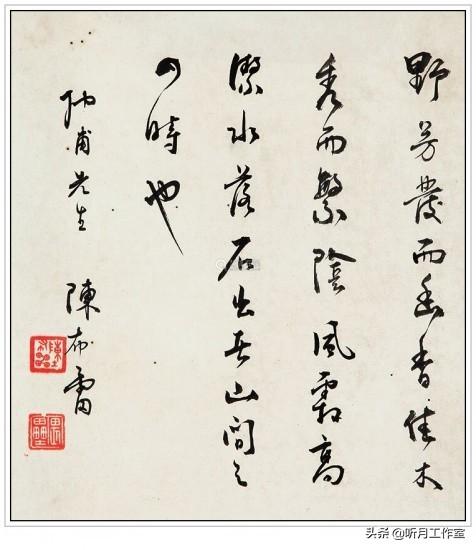 野芳發而幽香佳木
秀而繁陰風霜高
潔水落石出者山間之
四時也
甫先生 陳布雷
畏壘
头条 @听月工作室